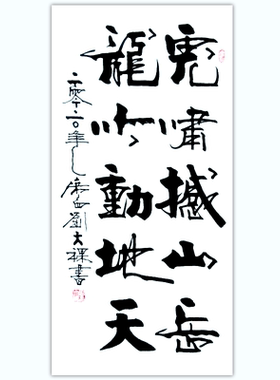 虎嘯撼山岳
龍吟動地天
二零二〇年 劉大 書